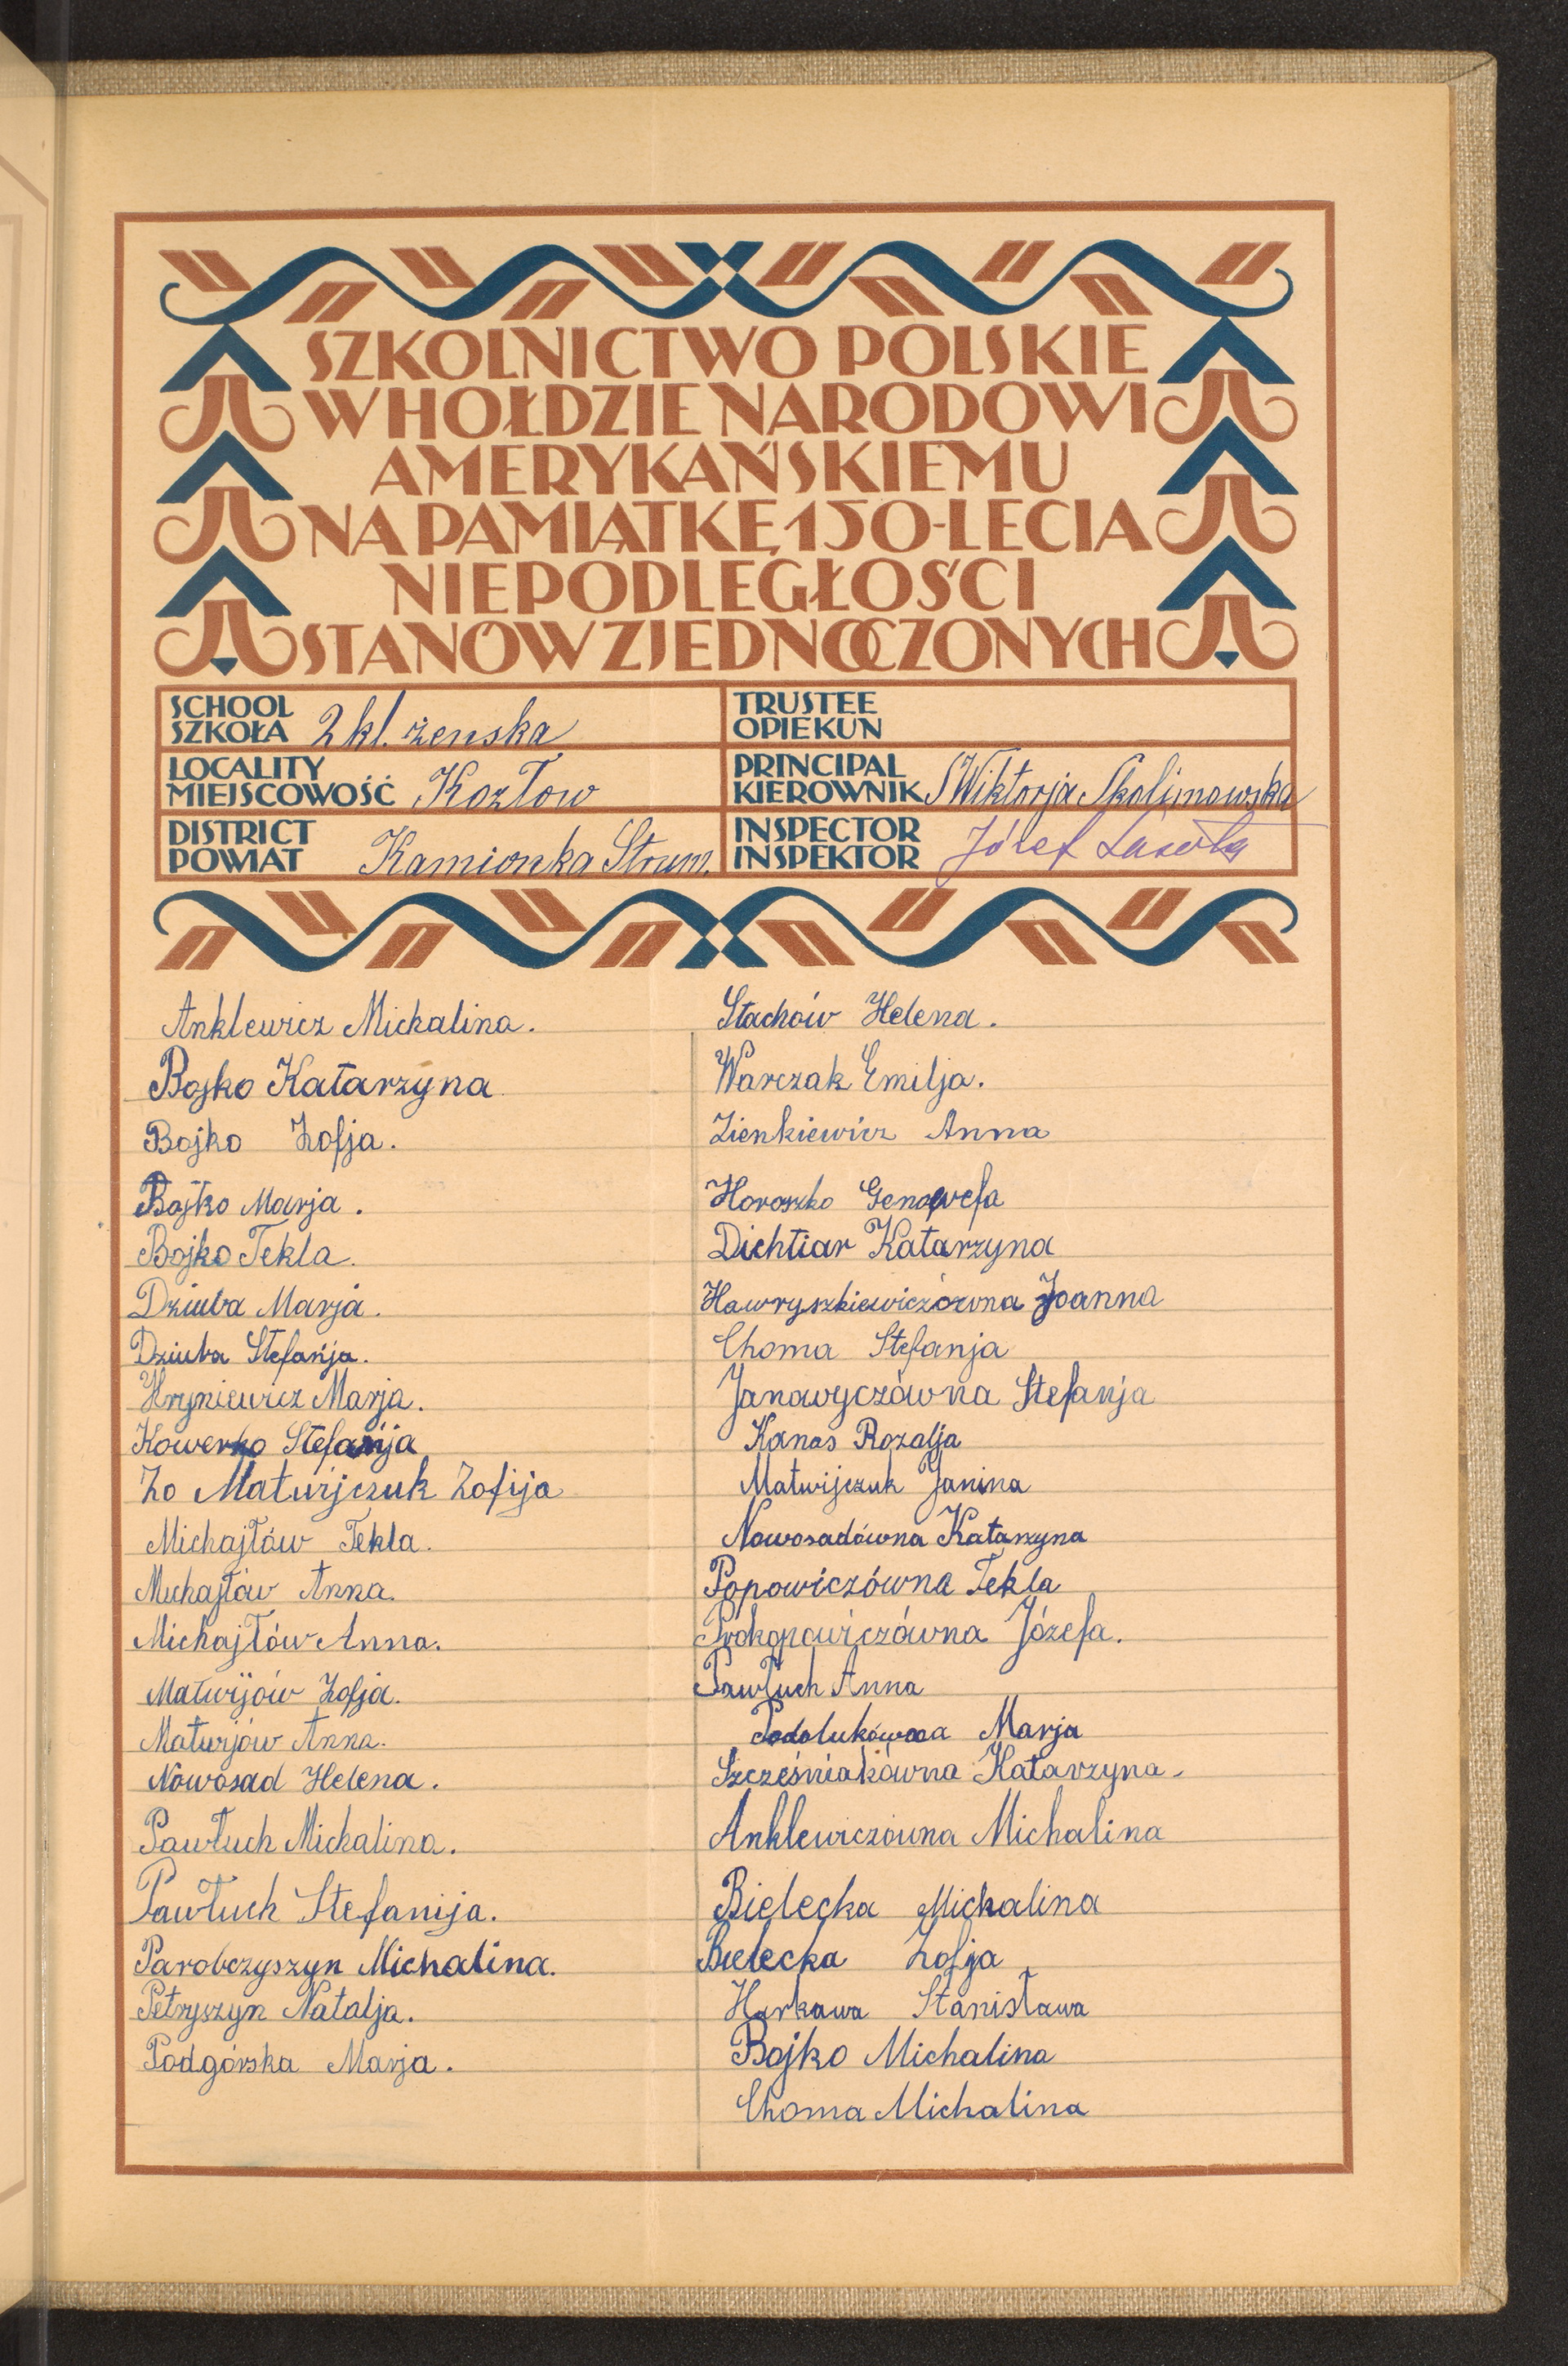 SZKOLNICTWO POLSKIE
W HOŁDZIE NARODOWI
AMERYKAŃSKIEMU
NA PAMIĄTKĘ 150-LECIA
NIEPODLEGŁOŚCI
STANÓW ZJEDNOCZONYCH
SCHOOL
SZKOŁA 2 kl. żenska
LOCALITY
MIEJSCOWOŚĆ Kozłow
DISTRICT
POWIAT Kamionka Strum.
TRUSTEE
OPIEKUN
PRINCIPAL
KIEROWNIK Wiktorja Skolimowska
INSPECTOR
INSPEKTOR Józef
Anklewicz Michalina.
Bojko Katarzyna
Bojko Zofja.
Bojko Marja.
Bojko Tekla.
Dziuba Marja.
Dziuba Stefanja.
Hryniewicz Marja.
Kowerko Stefanja
Zo Matwijczuk Zofija
Michajłów Tekla.
Michajłów Anna.
Michajłów Anna.
Matwijów Zofja.
Matwijów Anna.
Nowosad Helena.
Pawłuch Michalina.
Pawłuch Stefanija.
Parobczyszyn Michalina.
Petryszyn Natalja.
Podgórska Marja.
Stachów Helena.
Warczak Emilja.
Zienkiewicz Anna
Horoszko Genowefa
Dichtiar Katarzyna
Hawryszkiewiczówna Joanna
Choma Stefanja
Janowyczówna Stefanja
Kanas Rozalja
Matwijczuk Janina
Nowosadówna Katarzyna
Popowiczówna Tekla
Prokopowiczówna Józefa.
Pawłuch Anna
Podolukówna Marja
Szcześniakówna Katarzyna.
Anklewiczówna Michalina
Bielecka Michalina
Bielecka Zofja
Harkawa Stanisława
Bojko Michalina
Choma Michalina